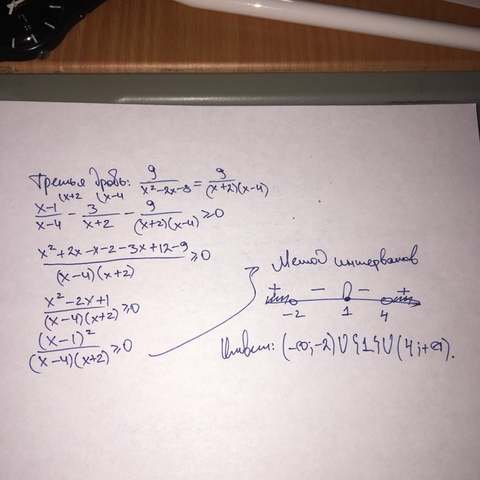 Третья дробь: 9/(x²-2x-8) = 9/((x+2)(x-4))
(x+2 (x-4
(x-1)/(x-4) - 3/(x+2) - 9/((x+2)(x-4)) ≥ 0
(x²+2x-x-2-3x+12-9)/((x-4)(x+2)) ≥ 0
(x²-2x+1)/((x-4)(x+2)) ≥ 0
(x-1)²/((x-4)(x+2)) ≥ 0
Метод интервалов
+ - - +
-2 1 4
Ответ: (-∞;-2)∪{1}∪(4;+∞).